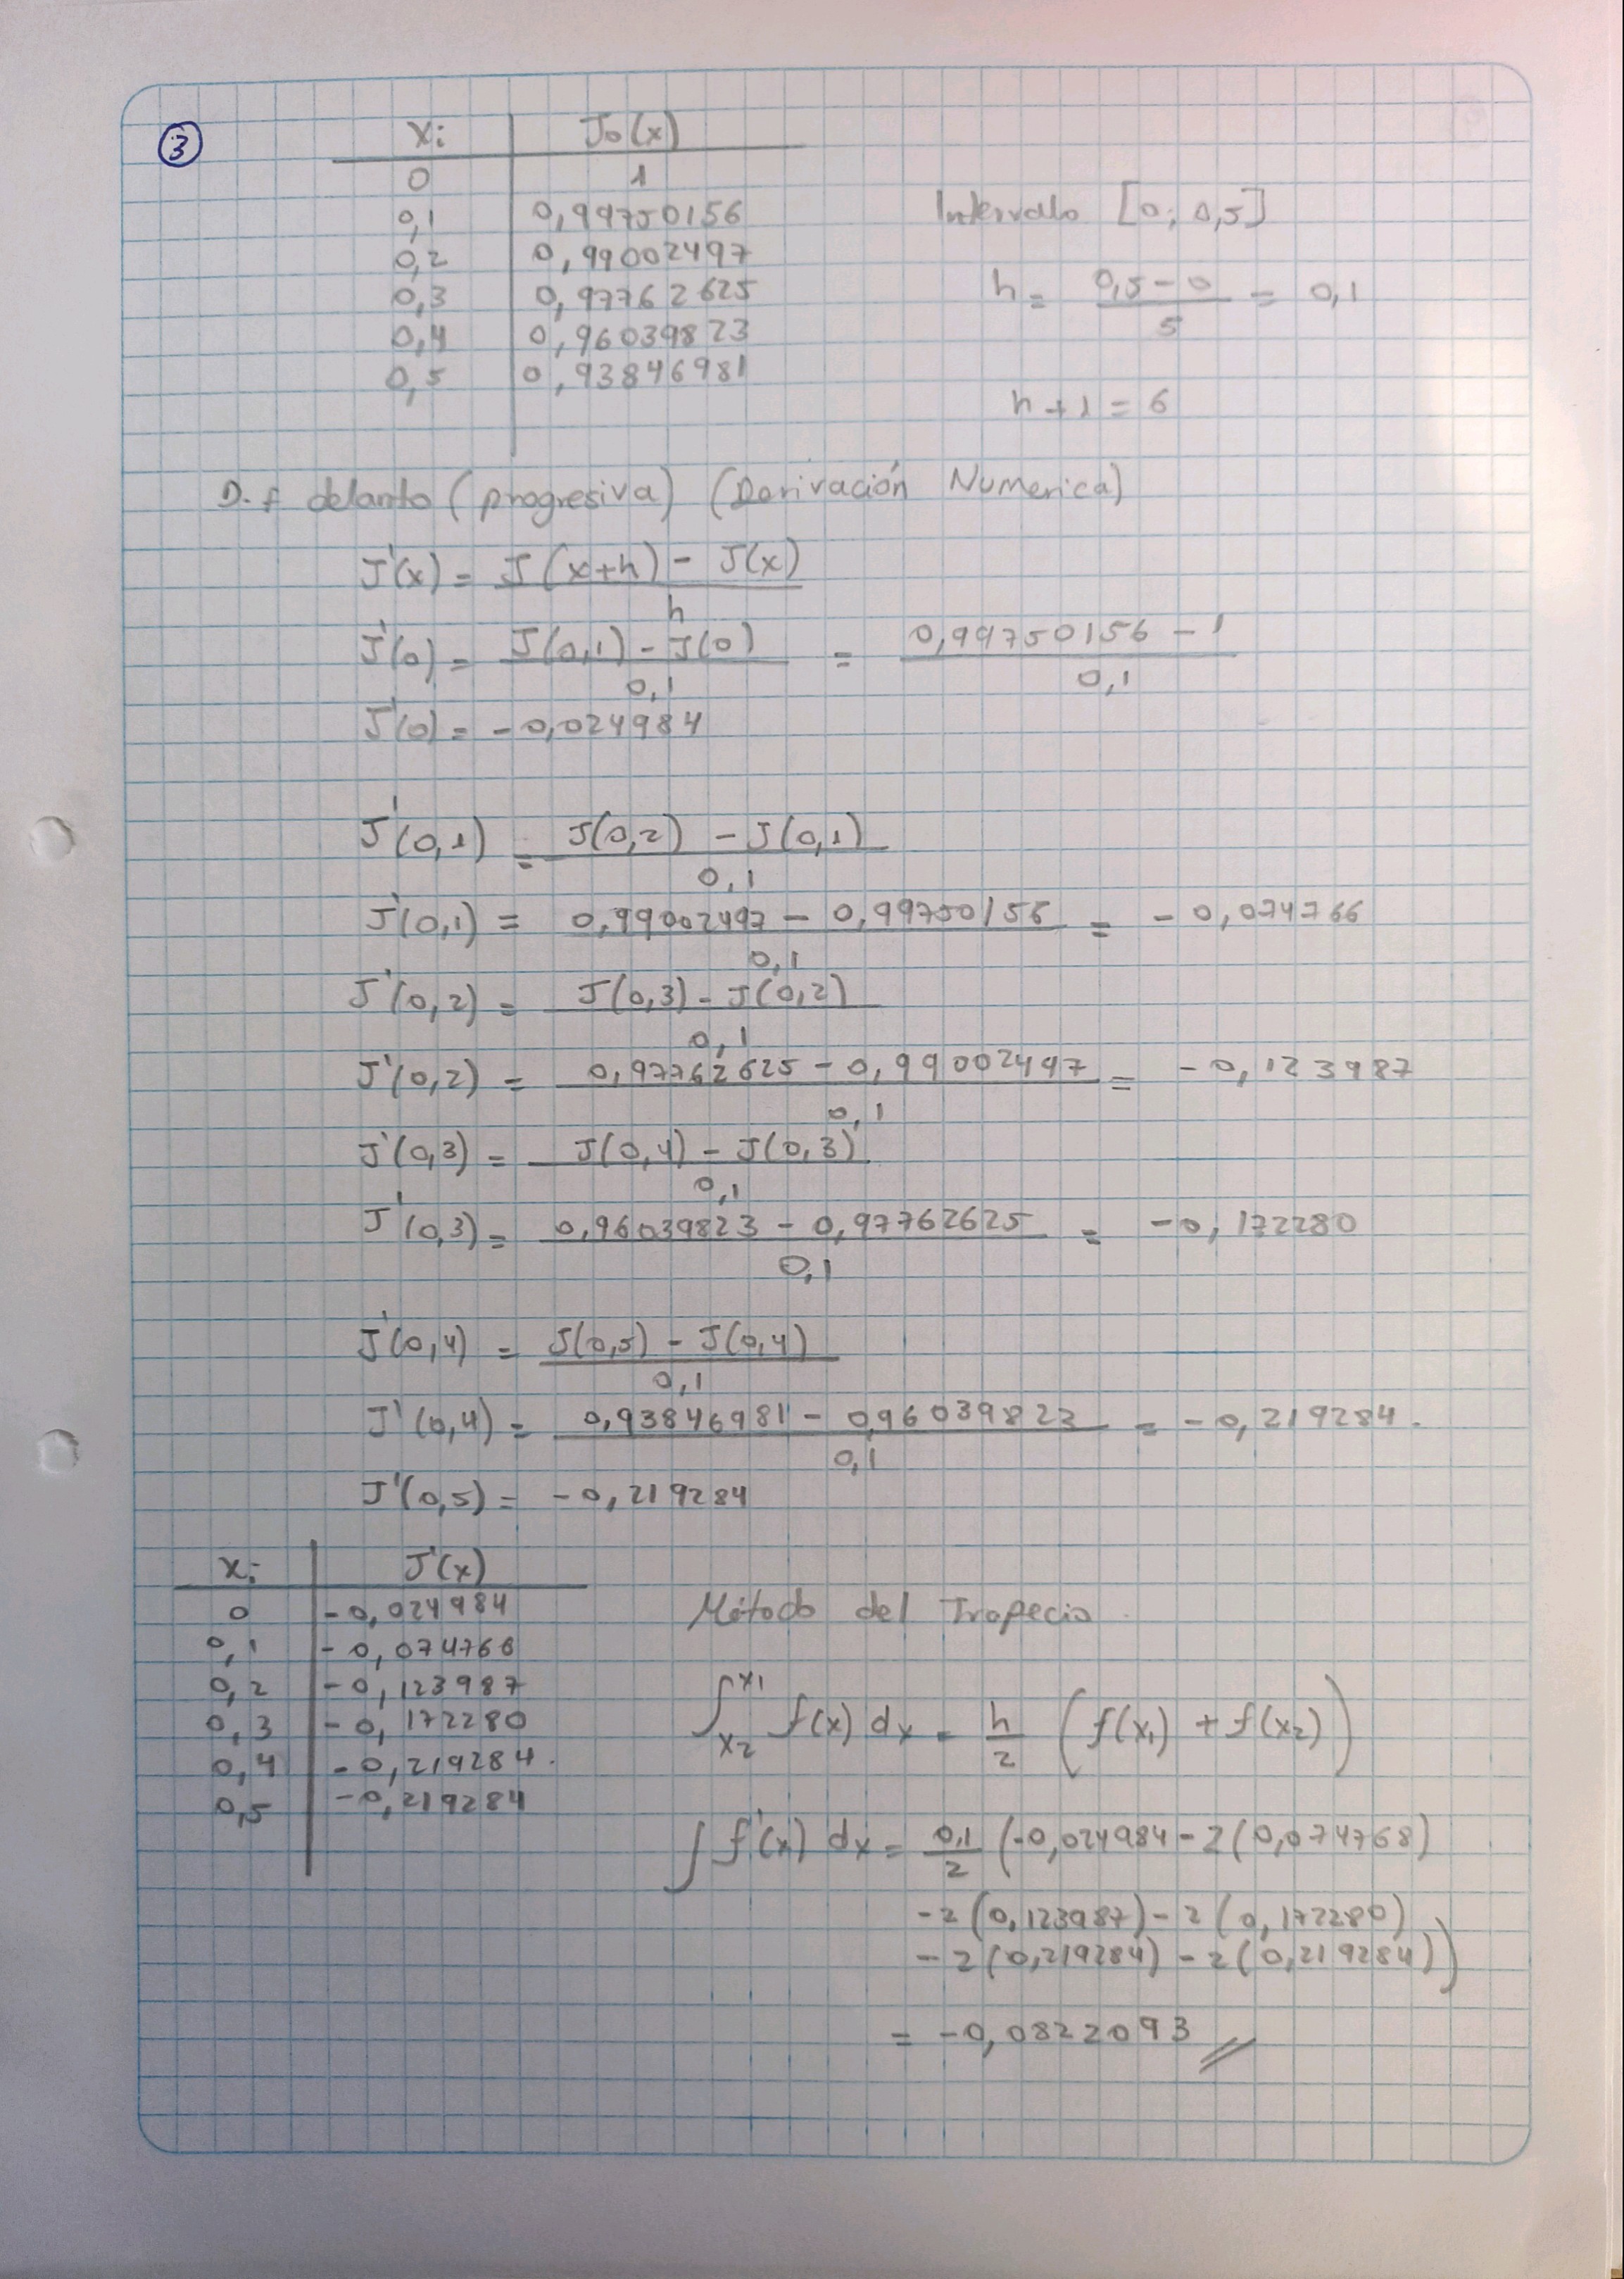 3
Xi | J₀(x)
0 | 1
0,1 | 0,99750156
0,2 | 0,99002497
0,3 | 0,97762625
0,4 | 0,96039823
0,5 | 0,93846981
Intervalo [0; 0,5]
h = (0,5 - 0)/5 = 0,1
n + 1 = 6
D. f delante (progresiva) (Derivación Numerica)
J'(x) = (J(x+h) - J(x))/h
J'(0) = (J(0,1) - J(0))/0,1 = (0,99750156 - 1)/0,1
J'(0) = -0,024984
J'(0,1) = (J(0,2) - J(0,1))/0,1
J'(0,1) = (0,99002497 - 0,99750156)/0,1 = -0,074766
J'(0,2) = (J(0,3) - J(0,2))/0,1
J'(0,2) = (0,97762625 - 0,99002497)/0,1 = -0,123987
J'(0,3) = (J(0,4) - J(0,3))/0,1
J'(0,3) = (0,96039823 - 0,97762625)/0,1 = -0,172280
J'(0,4) = (J(0,5) - J(0,4))/0,1
J'(0,4) = (0,93846981 - 0,96039823)/0,1 = -0,219284.
J'(0,5) = -0,219284
xi | J'(x)
0 | -0,024984
0,1 | -0,074766
0,2 | -0,123987
0,3 | -0,172280
0,4 | -0,219284.
0,5 | -0,219284
Método del Trapecio.
∫_{x2}^{x1} f(x) dx = h/2 (f(x₁) + f(x₂))
∫ f'(x) dx = 0,1/2 (-0,024984 - 2(0,074768)
- 2(0,123987) - 2(0,172280)
- 2(0,219284) - 2(0,219284))
= -0,0822093